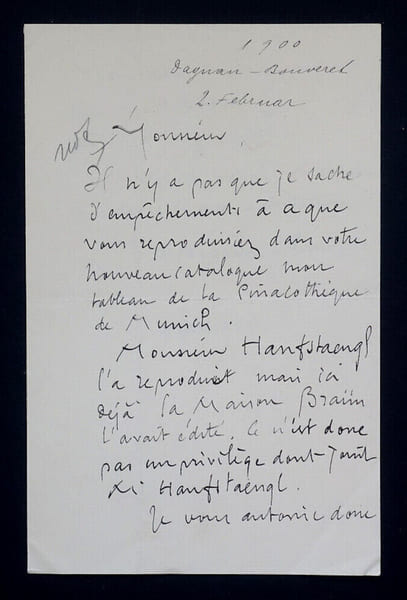 1900
Dagnan-Bouveret
2. Februar
Monsieur,
Il n'y a pas que je sache
d'empêchements à a que
vous reproduisiez dans votre
nouveau catalogue mon
tableau de la Pinacothèque
de Munich.
Monsieur Hanfstaengl
l'a reproduit mais ici
déjà la Maison Braün
l'avait édité. Ce n'est donc
pas un privilège dont jouit
Mr Hanfstaengl.
Je vous autorise donc